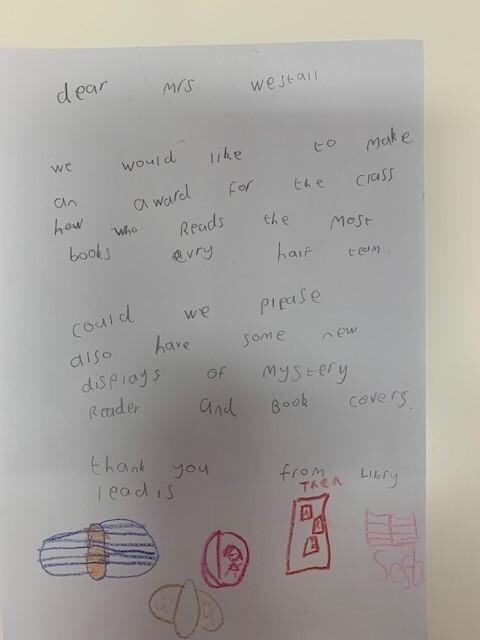 dear mrs westall
we would like to make
an award for the class
how who Reads the most
books evry half team.
could we please
also have some new
displays of mystery
Reader and Book covers.
thank you from Libry
leadis